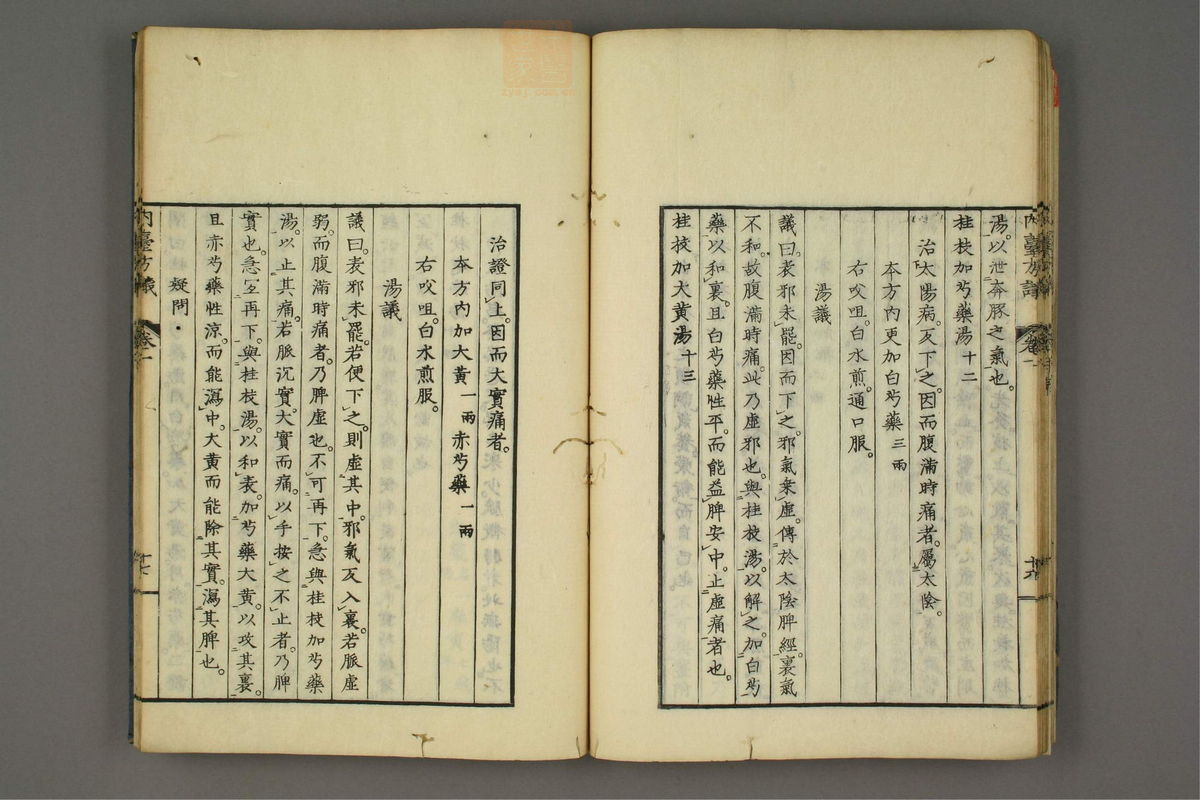 湯。以泄奔豚之氣也。
桂枝加芍藥湯十二
治太陽病。反下之。因而腹滿時痛者。屬太陰。
本方內更加白芍藥三兩
右㕮咀。白水煎。通口服。
湯議
議曰。表邪未罷。因而下之。邪氣乘虛。傳於太陰脾經。裏氣
不和。故腹滿時痛。此乃虛邪也。與桂枝湯。以解之。加白芍
藥以和裏。且白芍藥性平。而能益脾安中。止虛痛者也。
桂枝加大黃湯十三
治證同上。因而大實痛者。
本方內加大黃一兩赤芍藥一兩
右㕮咀。白水煎服。
湯議
議曰。表邪未罷。若便下之。則虛其中。邪氣反入裏。若脈虛
弱。而腹滿時痛者。乃脾虛也。不可再下。急與桂枝加芍藥
湯。以止其痛。若脈沉實。大實而痛。以手按之不止者。乃脾
實也。急宜再下。與桂枝湯。以和表。加芍藥大黃。以攻其裏。
且赤芍藥性涼。而能瀉中。大黃而能除其實。瀉其脾也。
疑問
內臺方議 卷一